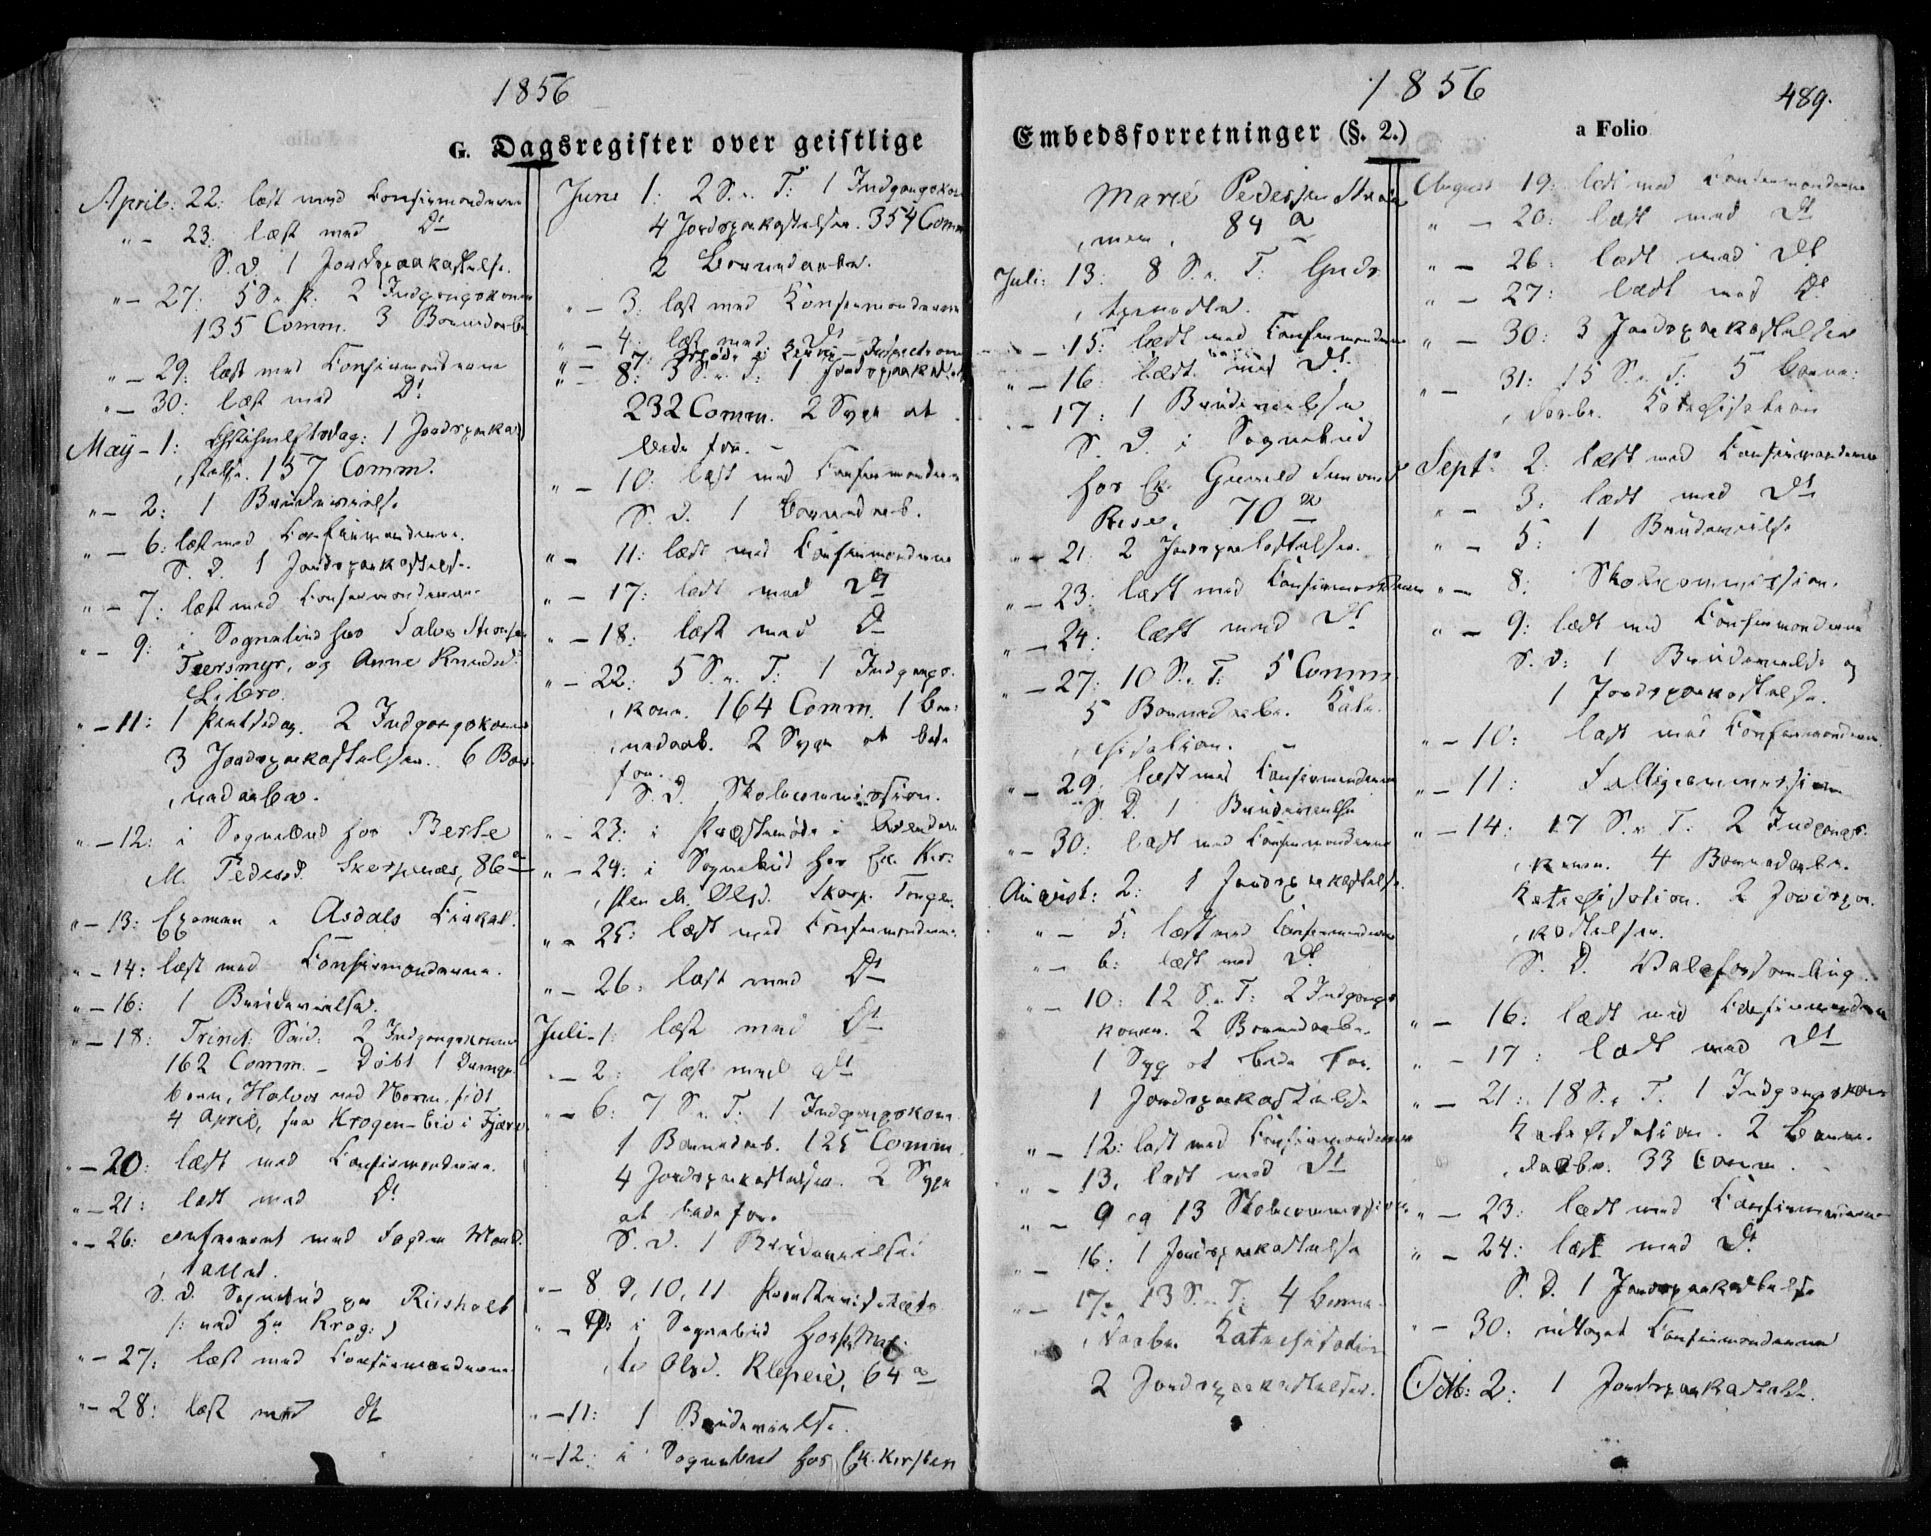 1856
G. Dagsregister over geistlige
April: 22: læst med Confirmanderne
" - 23: læst med Dt
S. D. 1 Jordspaakastelse.
" - 27: 5 S. e. P. 2 Indgangskoner
135 Comm. 3 Barnedaabe
" - 29: læst med Confirmanderne
" - 30: læst med Dt
May - 1: Christihimelfartsdag: 1 Jordspaaka-
stelse. 157 Comm.
" - 2: 1 Brudevielse
" - 6: læst med Confirmanderne.
S. D. 1 Jordspaakastelse.
" - 7: læst med Confirmanderne.
" - 9: i Sognebud hos Salve
Tiersmyr, og Anne Knudsd.
Libro.
" - 11: 1 Pintsedag. 2 Indgangskoner
3 Jordspaakastelser. 6 Bar-
nedaabe.
" - 12: i Sognebud hos Berte
M. Pedersd. Skerpnæs, 86 a
" - 13: Examen i Asdals Circul.
" - 14: læst med Confirmanderne.
" - 16: 1 Brudevielse.
" - 18: Trinit: Sønd: 2 Indgangskoner
162 Comm. - Døbt 1 Drenge-
barn, Halvor ved Navn, født
4 April, fra Krogen - Eie i Fjære
" - 20: læst med Confirmanderne.
" - 21: læst med Dt
" - 26: confereret med Fogden
S. D. Sognebud paa Risholt
(: ved Hr Krog :)
" - 27: læst med Confirmanderne
" - 28: læst med dt
June 1: 2 S. e. T: 1 Indgangskone
4 Jordspaakastelser. 354 Comm
2 Barnedaabe.
" - 3: læst med Confirmanderne
" - 4: læst med Dt
" - 7:
" - 8: 3 S. e. T: 1 Jordspaakastelse
232 Comm. 2 Syge at
bede for. -
" - 10: læst med Confirmanderne
S. D. 1 Barnedaab.
" - 11: læst med Confirmanderne
" - 17: læst med Dt
" - 18: læst med Dt
" - 22: 5 S. e. T: 1 Indgangs-
kone. 164 Comm. 1 Bar-
nedaab. 2 Syge at bede
for.
S. D. Skolecommission.
" - 23: i Præstemøde i Arendal
" - 24: i Sognebud hos Ek. Kir-
sten M. Olsd. Skarp. Tangen.
" - 25: læst med Confirmanderne.
" - 26: læst med Dt
Juli - 1: læst med Dt
" - 2: læst med Dt
" - 6: 7 S. e. T: 1 Indgangskone
1 Barnedaab. 125 Comm
4 Jordspaakastelser. 2 Syge
at bede for.
S. D. 1 Brudevielse.
" - 8, 9, 10, 11
" - 9: i Sognebud hos
Olsd. Klepeie, 64 a
" - 11: 1 Brudevielse.
" - 12: i Sognebud hos Ek. Kirsten
1856
489.
Embedsforretninger (§. 2.)
a Folio
Marie Pedersen
84 a
Juli: 13: 8 S. e. T: Guds-
tjeneste.
" - 15: læst med Confirmanderne
" - 16: læst med Dt
" - 17: 1 Brudevielse
S. D. i Sognebud
hos Ek.
70 a
" - 21: 2 Jordspaakastelser.
" - 23: læst med Confirmanderne
" - 24: læst med Dt
" - 27: 10 S. e. T: 5 Comm
5 Barnedaabe. Kate-
chisation.
" - 29: læst med Confirmanderne
S. D. 1 Brudevielse
" - 30: læst med Confirmanderne
August: 2: 1 Jordspaakastelse.
" - 5: læst med Confirmanderne
" - 6: læst med Dt
" - 10: 12 S. e. T: 2 Indgangs-
koner. 2 Barnedaabe.
1 Syg at bede for.
1 Jordspaakastelse
" - 12: læst med Confirmanderne
" - 13, læst med Dt
" - 9 og 13 Skolecommission
" - 16: 1 Jordspaakastelse
" - 17. 13 S. e. T: 4 Barne-
daabe. Katechisation
2 Jordspaakastelser.
August 19: læst med Confirmanderne
" - 20: læst med Dt
" - 26: læst med Dt
" - 27: læst med Dt
" - 30: 3 Jordspaakastelser
" - 31: 15 S. e. T: 5 Barne-
daabe. Katechisation
Septr 2: læst med Confirmanderne
" - 3: læst med Dt
" - 5: 1 Brudevielse
" - 8: Skolecommission.
" - 9: læst med Confirmanderne
S. D: 1 Brudevielse og
1 Jordspaakastelse.
" - 10: læst med Confirmanderne.
" - 11: Fattigcommission
" - 14: 17 S. e. T: 2 Indgangs-
koner. 4 Barnedaabe.
Katechisation. 2 Jordspaa-
kastelser.
S. D. Valgforsamling.
" - 16: læst med Confirmanderne
" - 17: læst med Dt
" - 21: 18 S. e. T. 1 Indgangskone
Katechisation. 2 Barne-
daabe. 33 Comm.
" - 23: læst med Confirmanderne
" - 24: læst med Dt
S. D. 1 Jordspaakastelse
" - 30: Confirmanderne
Octb: 2: 1 Jordspaakastelse.